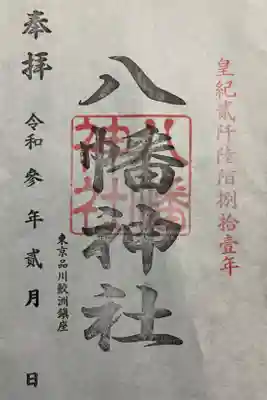 皇紀貳阡陸陌捌拾壹年
八幡神社
八幡神社
東京品川鮫洲鎮座
奉拝
令和参年貳月 日